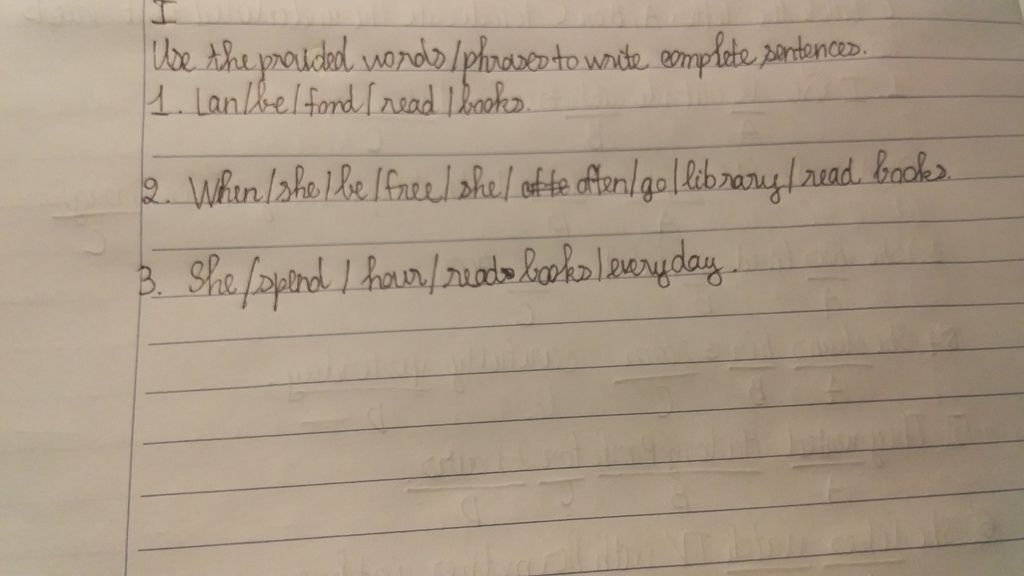 I
Use the provided words/phrases to write complete sentences.
1. Lan/be/fond/read/books.
2. When/she/be/free/she/ofte often/go/library/read books.
3. She/spend/hour/reads books/everyday.